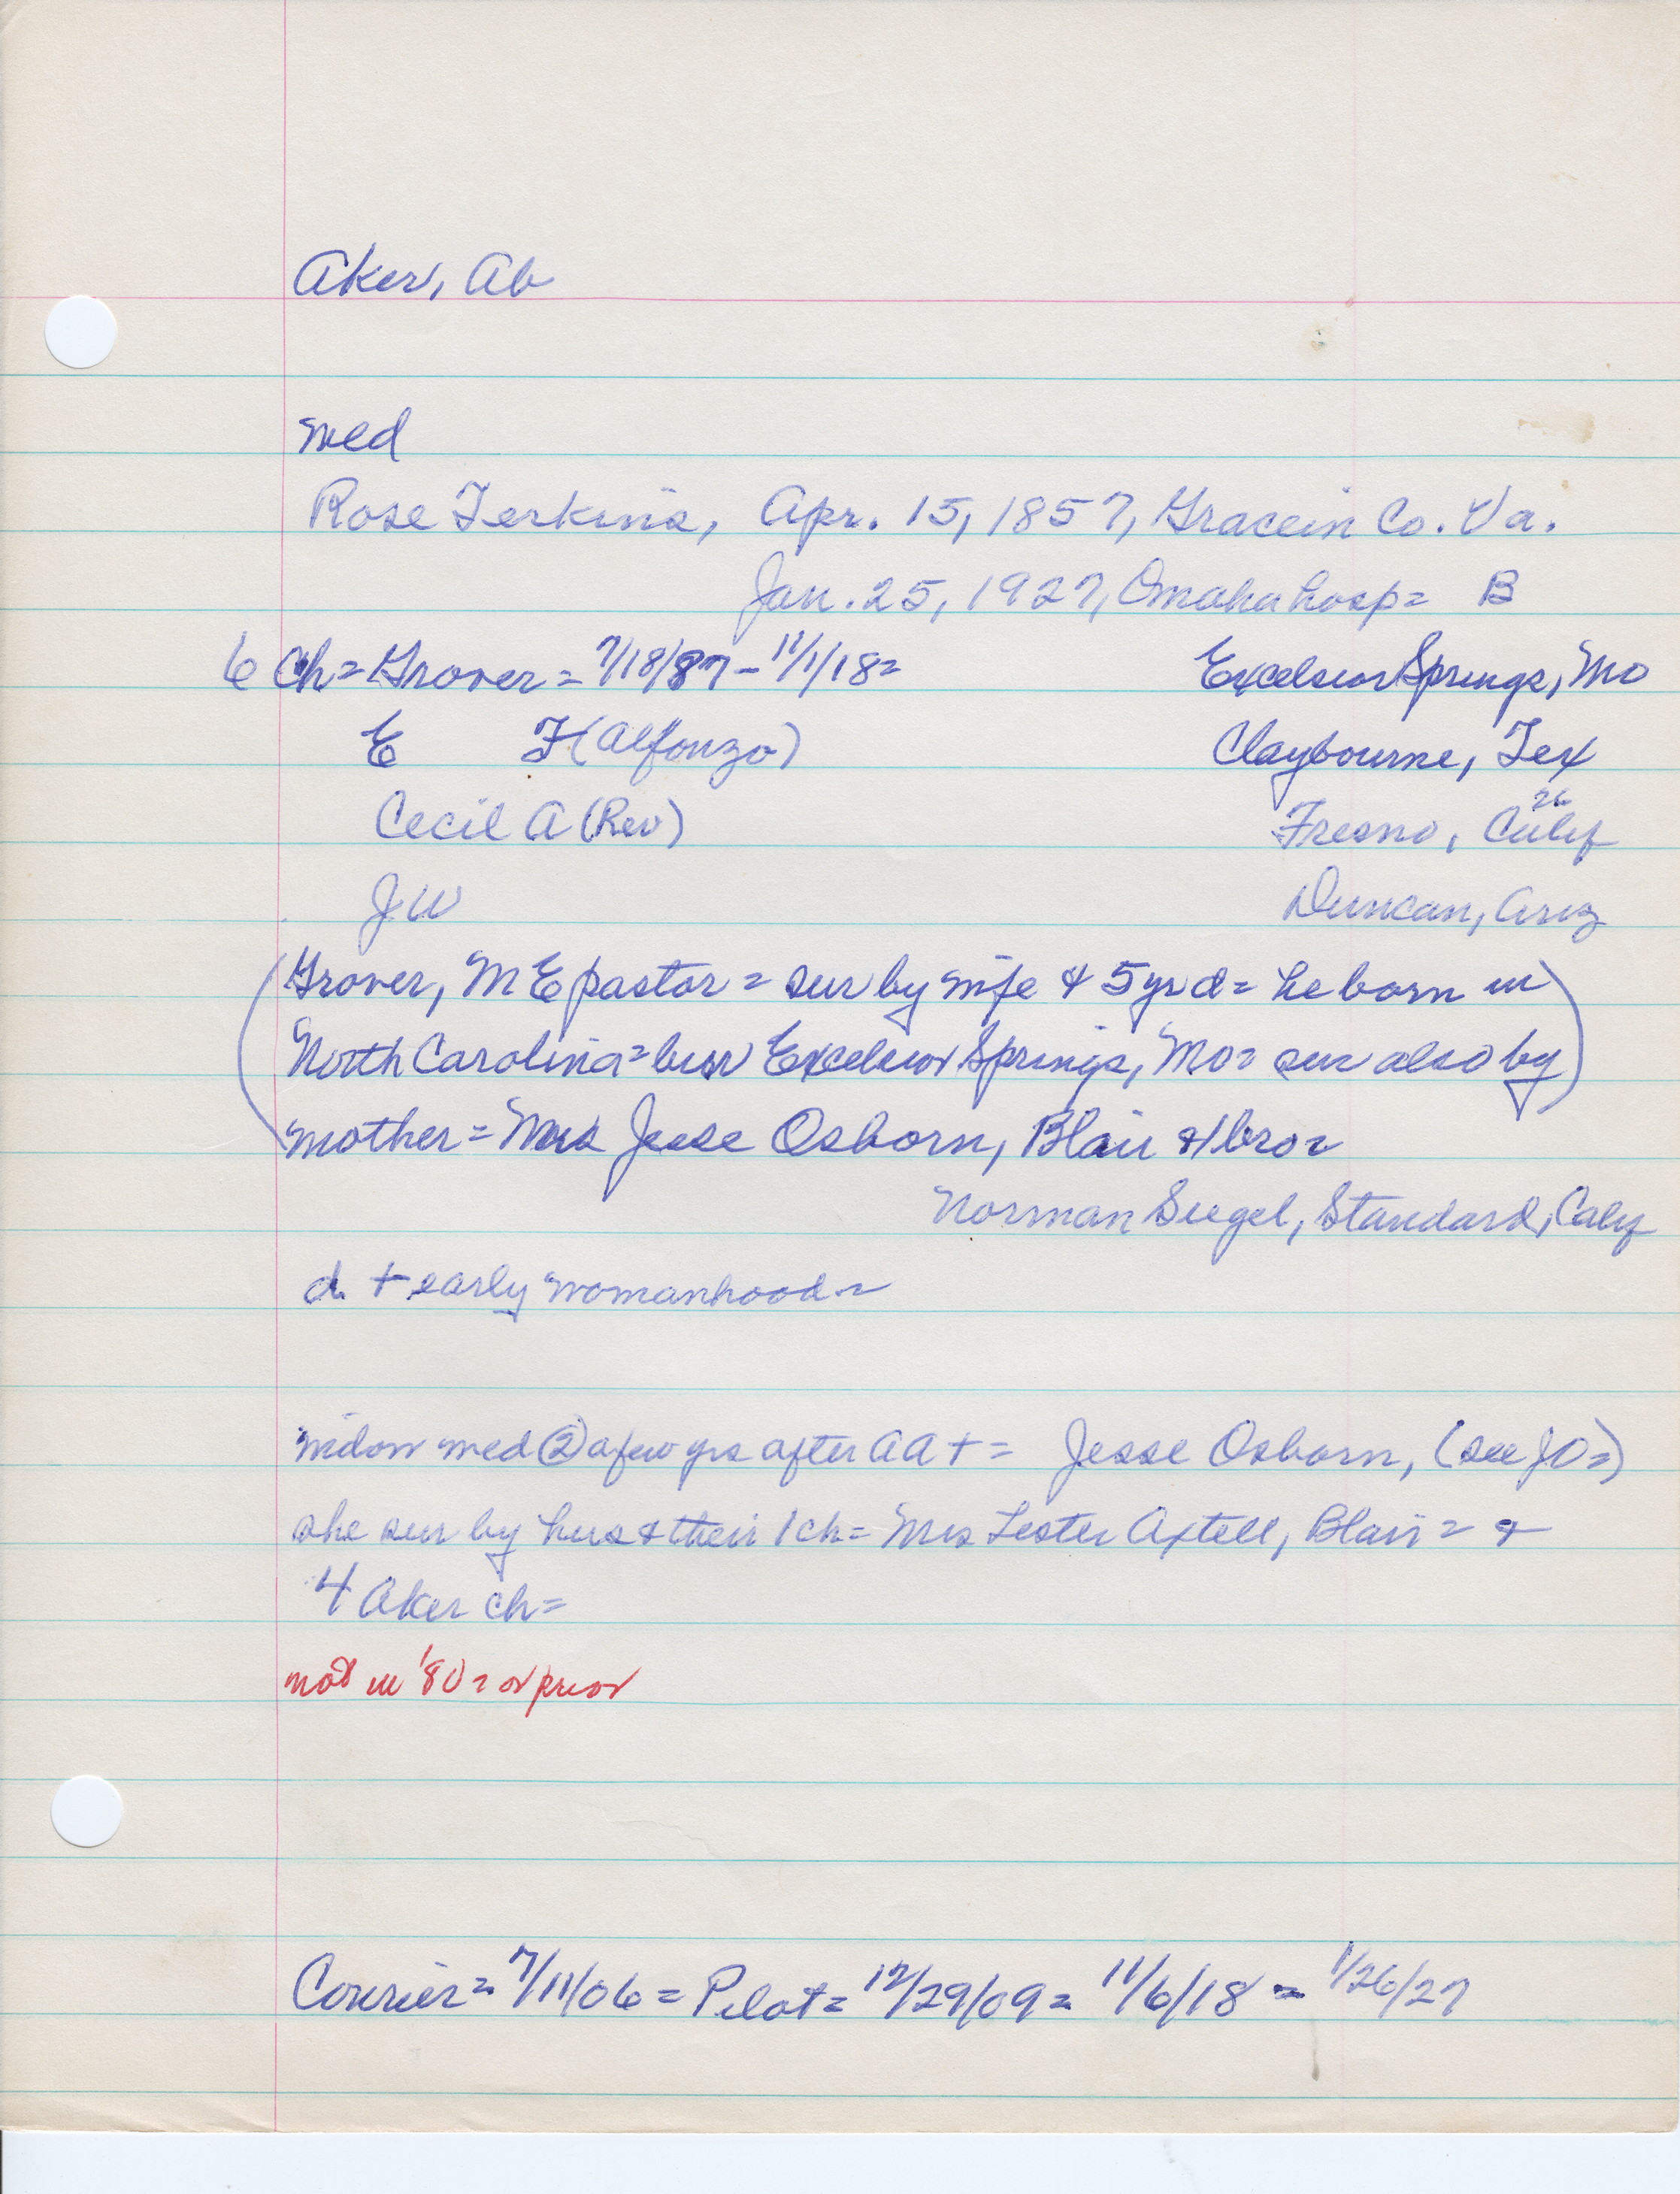 Aker, Ab
wed
Rose Ferkins, Apr. 15, 1857, Gracein Co. Va.
Jan. 25, 1927, Omaha hosp= B
6 Ch= Grover = 7/18/87 - 11/1/18= Excelsior Springs, Mo
E F (Alfonzo) Claybourne, Tex
Cecil A (Rev) Fresno, Calif 26
J W Duncan, Ariz
(Grover, M E pastor = sur by wife & 5 yr d = he born in
North Carolina = bur Excelsior Springs, Mo= sur also by)
mother = Mrs Jesse Osborn, Blair & 1 bro=
Norman Siegel, Standard, Calif
d. + early womanhood=
widow wed ② a few yrs after AA + = Jesse Osborn, (see JO=)
she sur by hus & their 1 ch= Mrs Lester Axtell, Blair = &
4 Aker ch=
not in '80 = or prior
Courier= 7/11/06 = Pilot= 12/29/09 = 11/6/18 = 1/26/27